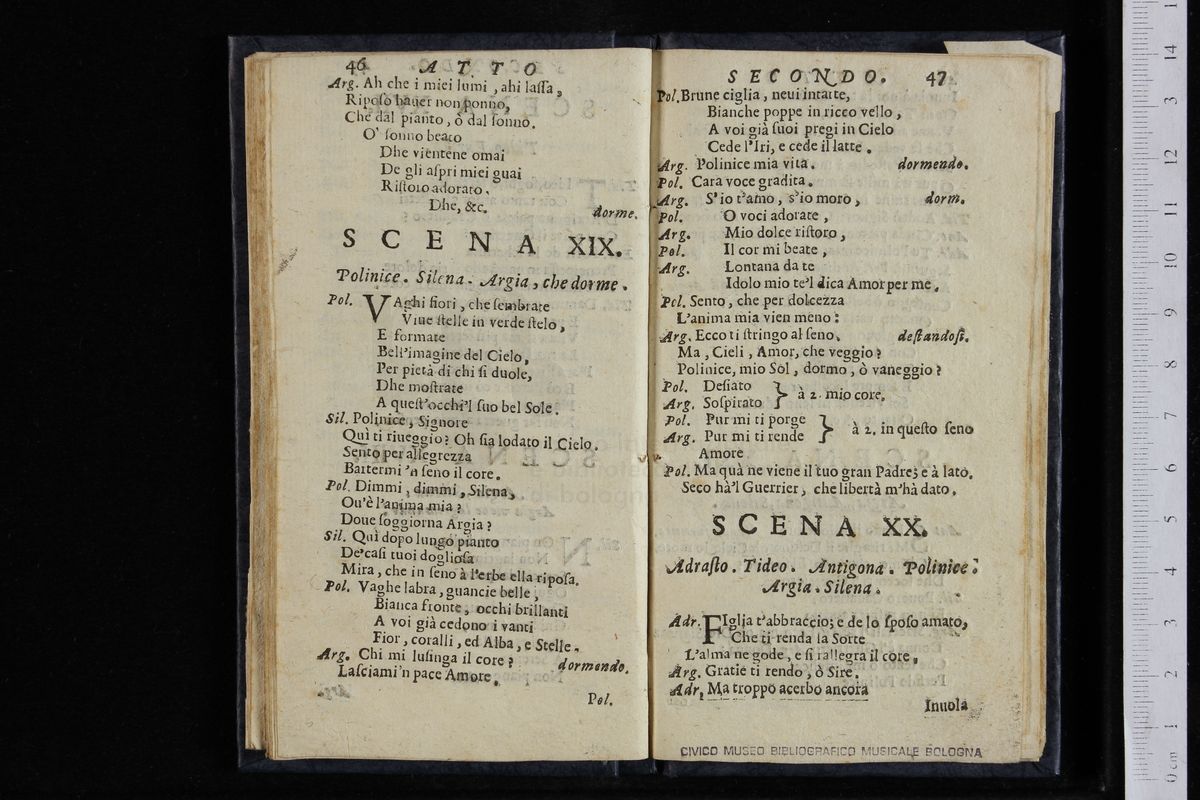 46 ATTO
Arg. Ah che i miei lumi, ahi lassa,
Riposo hauer non ponno,
Che dal pianto, ò dal sonno.
O' sonno beato
Dhe vientene omai
De gli aspri miei guai
Ristoro adorato.
Dhe, &c. dorme.
SCENA XIX.
Polinice. Silena. Argia, che dorme.
Pol. VAghi fiori, che sembrate
Viue stelle in verde stelo,
E formate
Bell'imagine del Cielo,
Per pietà di chi si duole,
Dhe mostrate
A quest'occhi'l suo bel Sole.
Sil. Polinice, Signore
Quì ti riueggio? Oh sia lodato il Cielo.
Sento per allegrezza
Battermi 'n seno il core.
Pol. Dimmi, dimmi, Silena,
Ou'è l'anima mia?
Doue soggiorna Argia?
Sil. Quì dopo lungo pianto
De' casi tuoi dogliosa
Mira, che in seno à l'erbe ella riposa.
Pol. Vaghe labra, guancie belle,
Bianca fronte, occhi brillanti
A voi già cedono i vanti
Fior, coralli, ed Alba, e Stelle.
Arg. Chi mi lusinga il core? dormendo.
Lasciami'n pace Amore.
Pol.
SECONDO. 47
Pol. Brune ciglia, neui intatte,
Bianche poppe in ricco vello,
A voi già suoi pregi in Cielo
Cede l'Iri, e cede il latte.
Arg. Polinice mia vita. dormendo.
Pol. Cara voce gradita.
Arg. S'io t'amo, s'io moro, dorm.
Pol. O voci adorate,
Arg. Mio dolce ristoro,
Pol. Il cor mi beate,
Arg. Lontana da te
Idolo mio te'l dica Amor per me.
Pol. Sento, che per dolcezza
L'anima mia vien meno:
Arg. Ecco ti stringo al seno. destandosi.
Ma, Cieli, Amor, che veggio?
Polinice, mio Sol, dormo, ò vaneggio?
Pol. Desiato
Arg. Sospirato } à 2. mio core.
Pol. Pur mi ti porge
Arg. Pur mi ti rende } à 2. in questo seno
Amore
Pol. Ma quà ne viene il tuo gran Padre; e à lato.
Seco hà'l Guerrier, che libertà m'hà dato.
SCENA XX.
Adrasto. Tideo. Antigona. Polinice.
Argia. Silena.
Adr. FIglia t'abbraccio; e de lo sposo amato,
Che ti renda la Sorte
L'alma ne gode, e si rallegra il core.
Arg. Gratie ti rendo, ò Sire.
Adr. Ma troppo acerbo ancora
Inuola
CIVICO MUSEO BIBLIOGRAFICO MUSICALE BOLOGNA